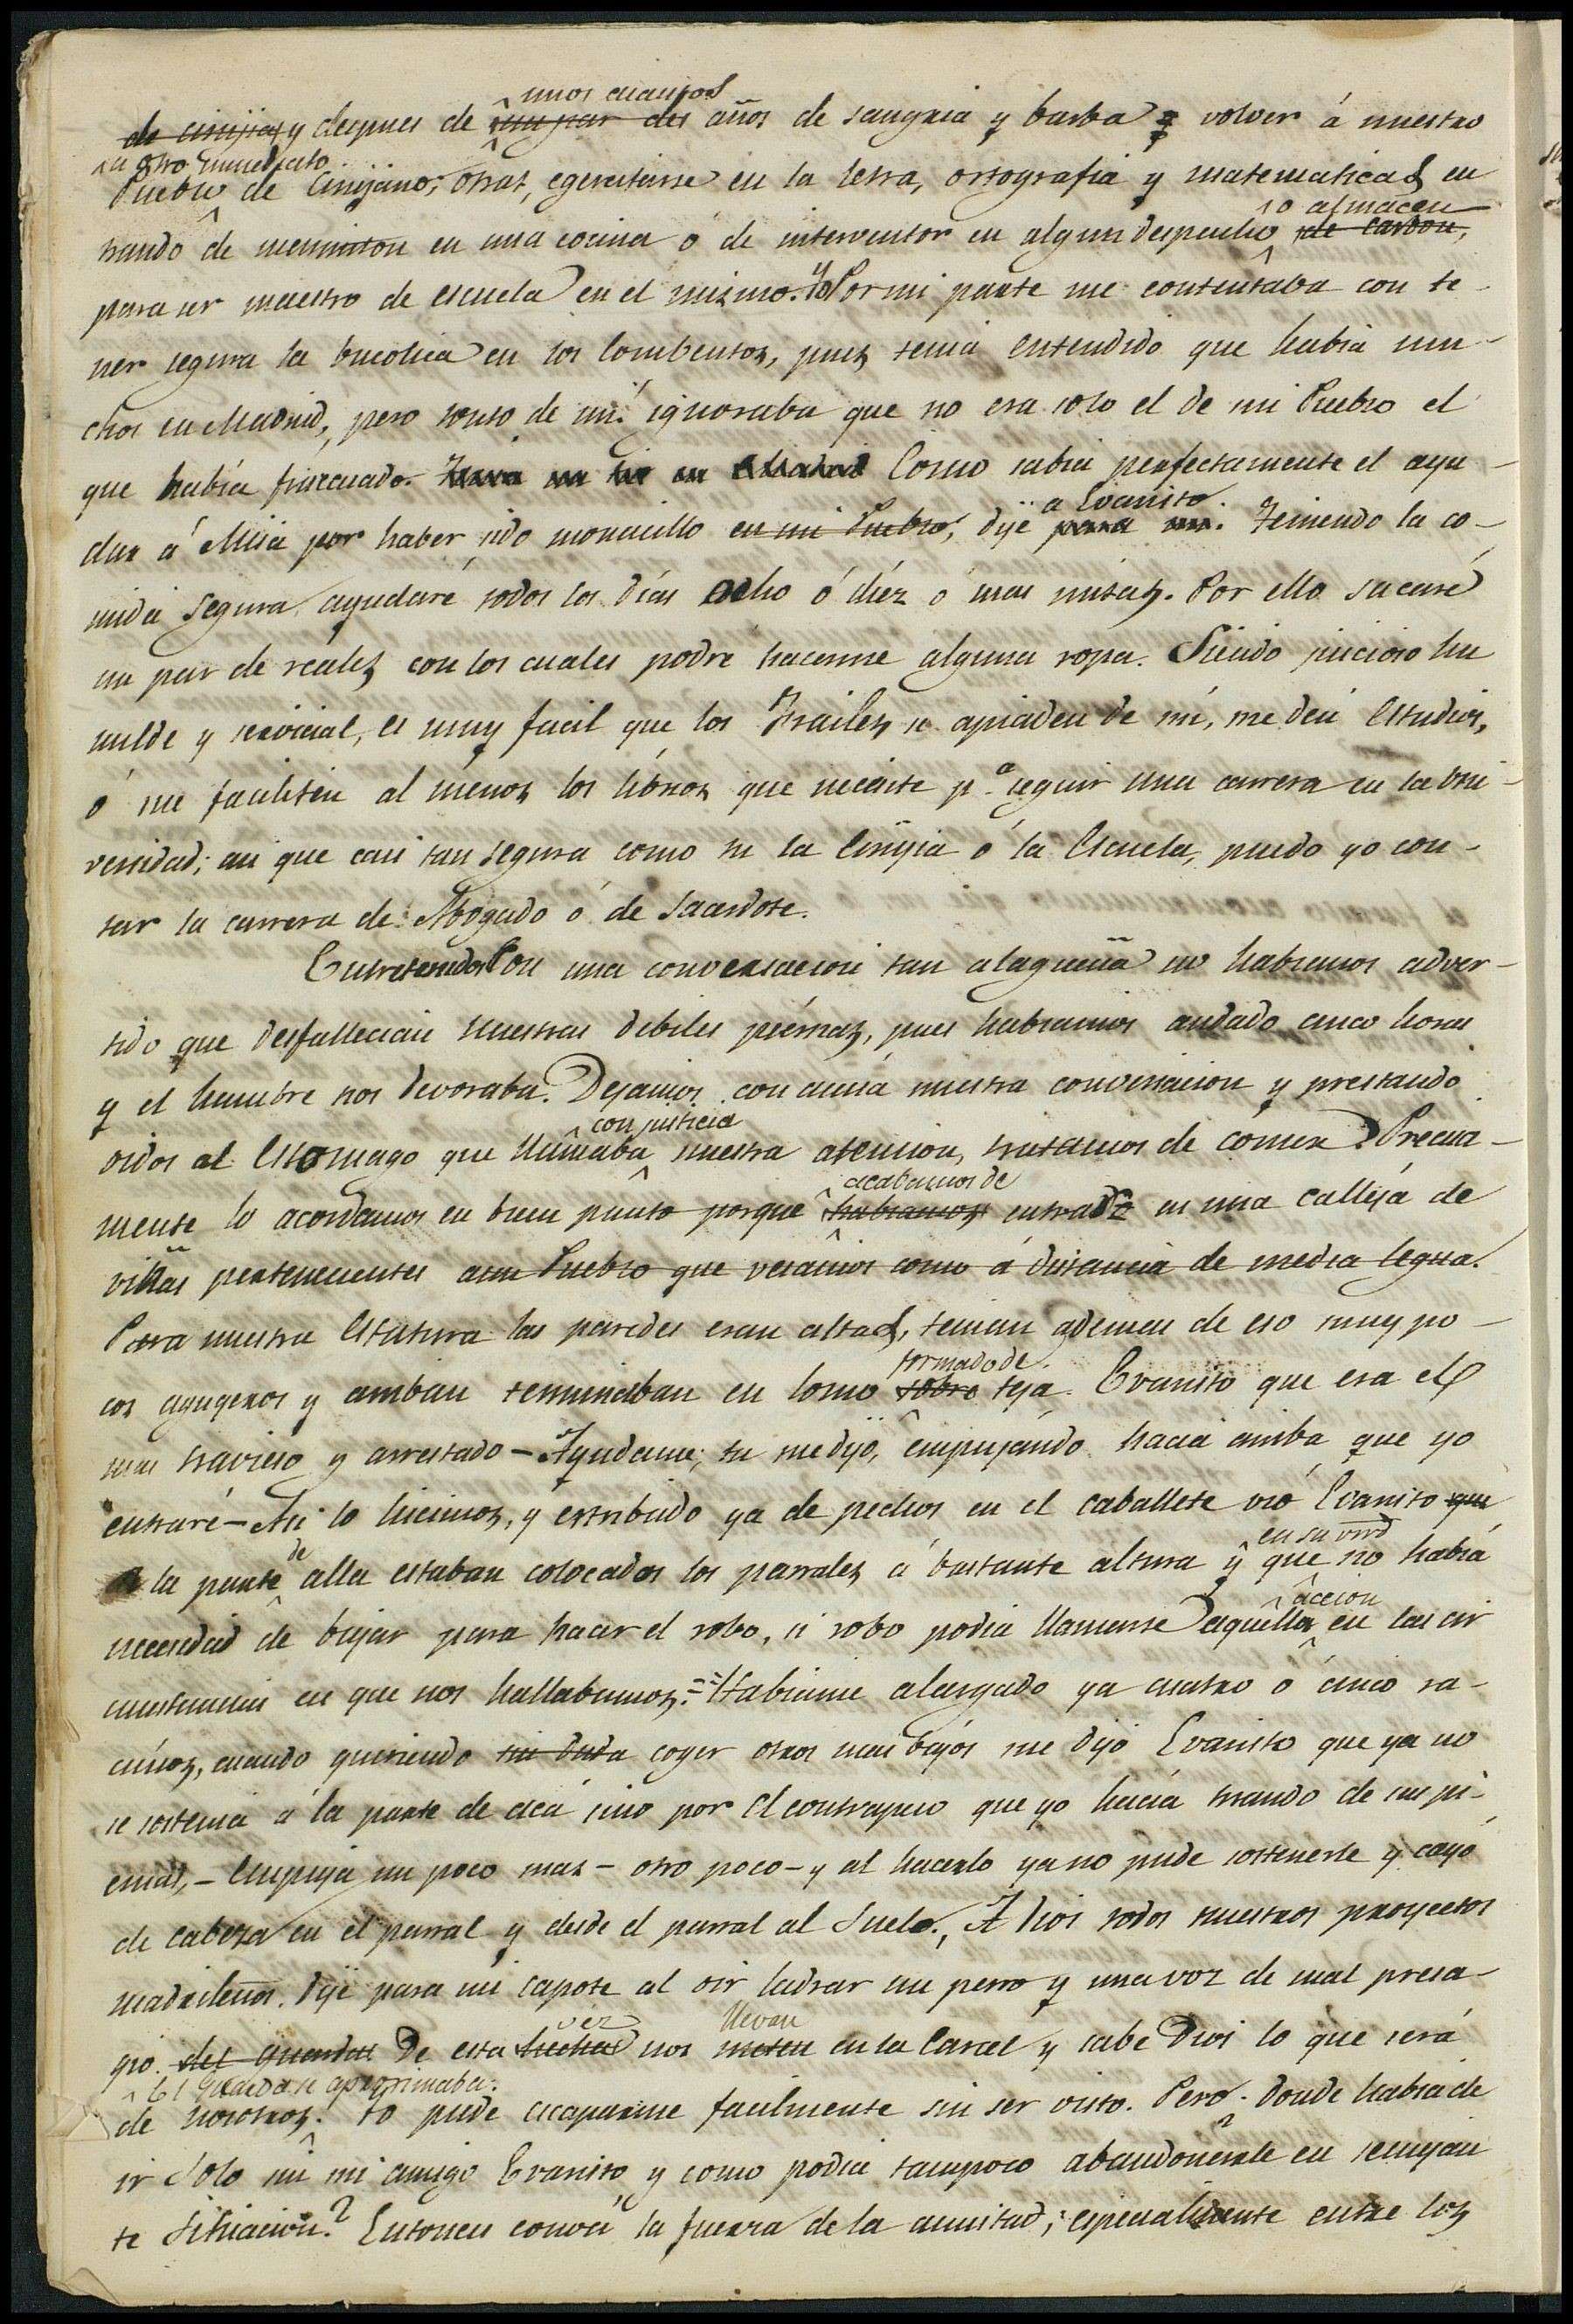 unos cuantos
de cirujia y despues de un par de años de sangria y barba volver á nuestro
u otro inmediato
Pueblo de Cirujano; otras, egercitarse en la letra, ortografia y matematicas en
o almacen
trando de en una cocina ó de interventor en algun despacho de carbon,
para ser maestro de escuela en el mismo. Yo Por mi parte me contentaba con te-
ner segura la bucolica en los Combentos, pues tenia entendido que habia mu-
chos en Madrid, pero tonto de mi! ignoraba que no era solo el de mi Pueblo el
que había fracasado. Tenia un tio en Madrid Como sabia perfectamente el ayu-
a Evaristo
dar á Misa por haber sido monacillo en mi Pueblo, dije para mi. Teniendo la co-
mida segura, ayudaré todos los dias ocho ó diez ó mas misas. Por ello sacaré
un par de reales con los cuales podré hacerme alguna ropa. Siendo juicioso hu
milde y servicial, es muy facil que los Frailes se apiaden de mí, me den estudios,
ó me faciliten al ménos los libros que necesite pª seguir una carrera en la Uni-
versidad; asi que casi tan segura como tu la Cirujia ó la Escuela, puedo yo con-
tar la carrera de Abogado ó de Sacerdote.
Entretenidos Con una conversacion tan alagueña no habiamos adver-
tido que desfallecian nuestras debiles piérnas, pues habiamos andado cinco horas
y el hambre nos devoraba. Dejamos con ansia nuestra conversacion y prestando
con justicia
oidos al Estomago que llamaba nuestra atencion, tratamos de comer. Precisa-
acabamos de
mente lo acordamos en buen punto porque habiamos entrado en una calleja de
viñas pertenecientes a un Pueblo que veiamos como á distancia de media legua.
Para nuestra Estatura las paredes eran altas, tenian ademas de eso muy po-
formado de
cos agugeros y arriba terminaban en lomo sobre teja. Evaristo que era el
mas travieso y arrestado - Ayudame; tu me dijo, empujándo hacia arriba que yo
entraré - Asi lo hicimos, y estribado ya de pechos en el caballete vió Evaristo que
de en su vird
a la parte alla estaban colocados los parrales á bastante altura y que no habia
accion
necesidad de bajar para hacer el robo, si robo podia llamarse aquella en las cir
cunstancias en que nos hallabamos. = Habiame alargado ya cuatro ó cinco ra-
cimos, cuando queriendo sin duda coger otros mas bajos me dijo Evaristo que ya no
se sostenia á la parte de acá sino por el contrapeso que yo hacia tirando de sus pi-
ernas, - Empuja un poco mas - otro poco - y al hacerlo ya no pude sostenerle y cayó
de cabeza en el parral y desde el parral al Suelo., A Dios todos nuestros proyectos
madrileños. Dije para mi capote al oir ladrar un perro y una voz de mal presa-
vez llevan
gio. del guardas De esta hecha nos meten en la Carcel y sabe Dios lo que será
El guarda se aprosimaba.
de nosotros! Yo pude escaparme facilmente sin ser visto. Pero donde habia de
ir Solo sin mi amigo Evaristo, y como podia tampoco abandonarle en semejan
te Situacion? Entonces conocí la fuerza de la amistad; especialmente entre los